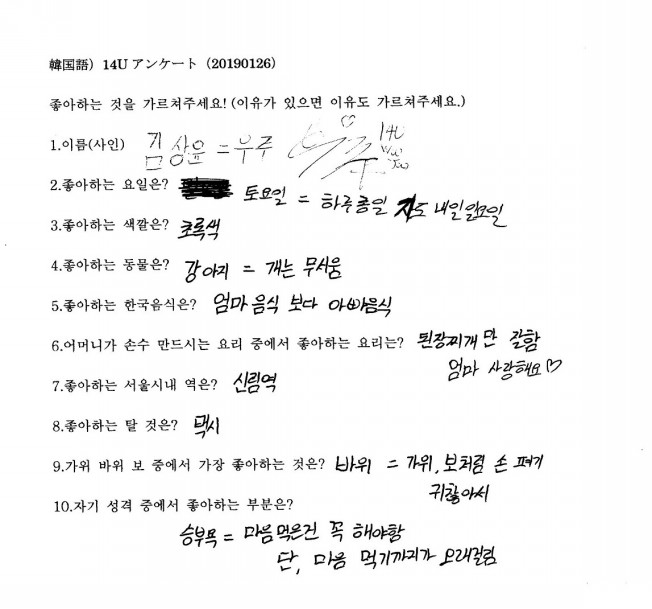 韓国語) 14U アンケート (20190126)
좋아하는 것을 가르쳐주세요! (이유가 있으면 이유도 가르쳐주세요.)
1.이름(사인) 김상윤 = 우주 우주 14U
2.좋아하는 요일은? 토요일 = 하루종일 자도 내일 일요일
3.좋아하는 색깔은? 초록색
4.좋아하는 동물은? 강아지 = 개는 무서움
5.좋아하는 한국음식은? 엄마 음식 보다 아빠음식
6.어머니가 손수 만드시는 요리 중에서 좋아하는 요리는? 된장찌개 만 잘함
엄마 사랑해요♡
7.좋아하는 서울시내 역은? 신림역
8.좋아하는 탈 것은? 택시
9.가위 바위 보 중에서 가장 좋아하는 것은? 바위 = 가위, 보처럼 손 펴기
귀찮아서
10.자기 성격 중에서 좋아하는 부분은?
승부욕 = 마음먹은건 꼭 해야함
단, 마음 먹기까지가 오래걸림